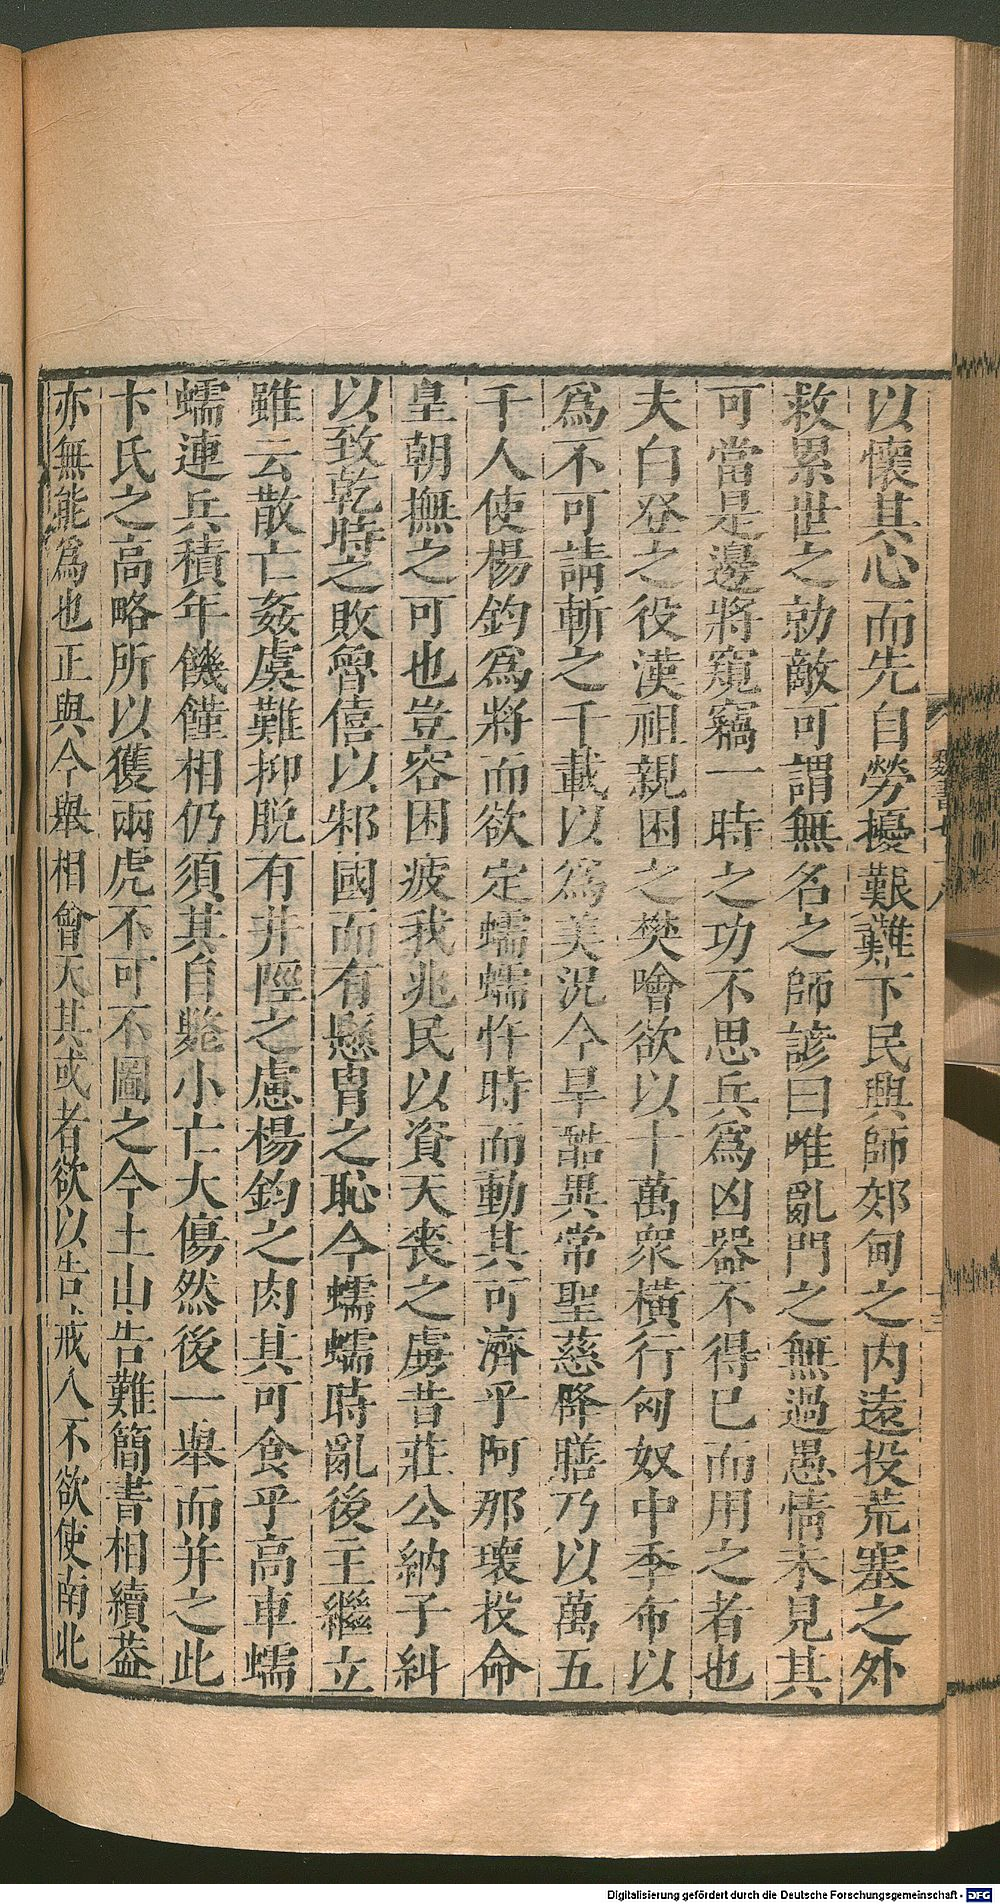 以懷其心而先自勞擾艱難下民興師郊甸之内遠投荒塞之外
救累世之勍敵可謂無名之師諺曰唯亂門之無過愚情未見其
可當是邊將窺竊一時之功不思兵爲凶器不得已而用之者也
夫白登之役漢祖親困之樊噲欲以十萬衆橫行匈奴中季布以
爲不可請斬之千載以爲美況今旱酷異常聖慈降膳乃以萬五
千人使楊鈞爲將而欲定蠕蠕忤時而動其可濟乎阿那瓌投命
皇朝撫之可也豈容困疲我兆民以資天喪之虜昔莊公納子糾
以致乾時之敗魯僖以邾國而有懸胄之恥今蠕蠕時亂後主繼立
雖云散亡姦虞難抑脱有井陘之慮楊鈞之肉其可食乎高車蠕
蠕連兵積年饑饉相仍須其自斃小亡大傷然後一舉而并之此
卞氏之高略所以獲兩虎不可不圖之今土山告難簡書相續葢
亦無能爲也正與今舉相會天其或者欲以告戒人不欲使南北
魏書七十八
十三
Digitalisierung gefördert durch die Deutsche Forschungsgemeinschaft - DFG